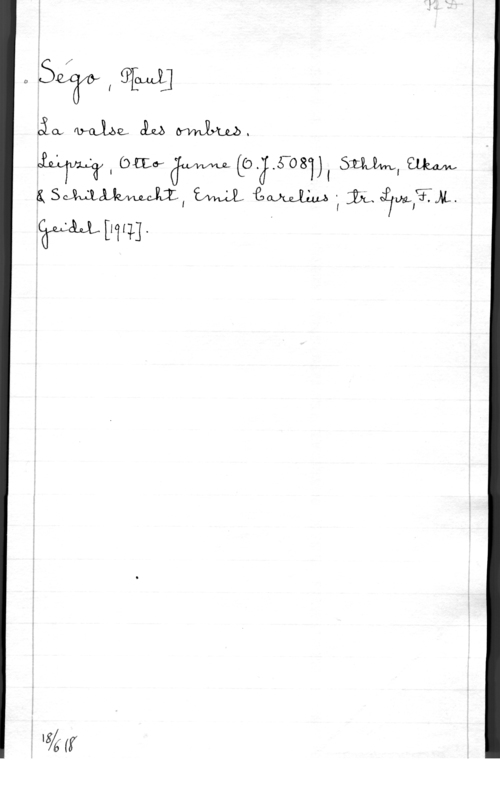 Ségo, P[aul]
La valse des ombres.
Leipzig, Otto Junne (O.J.5089), Sthlm, Elkan
& Schildknecht, Emil Carelius; tr. Lpz, F. M.
Geidel [1917].
18/6 18